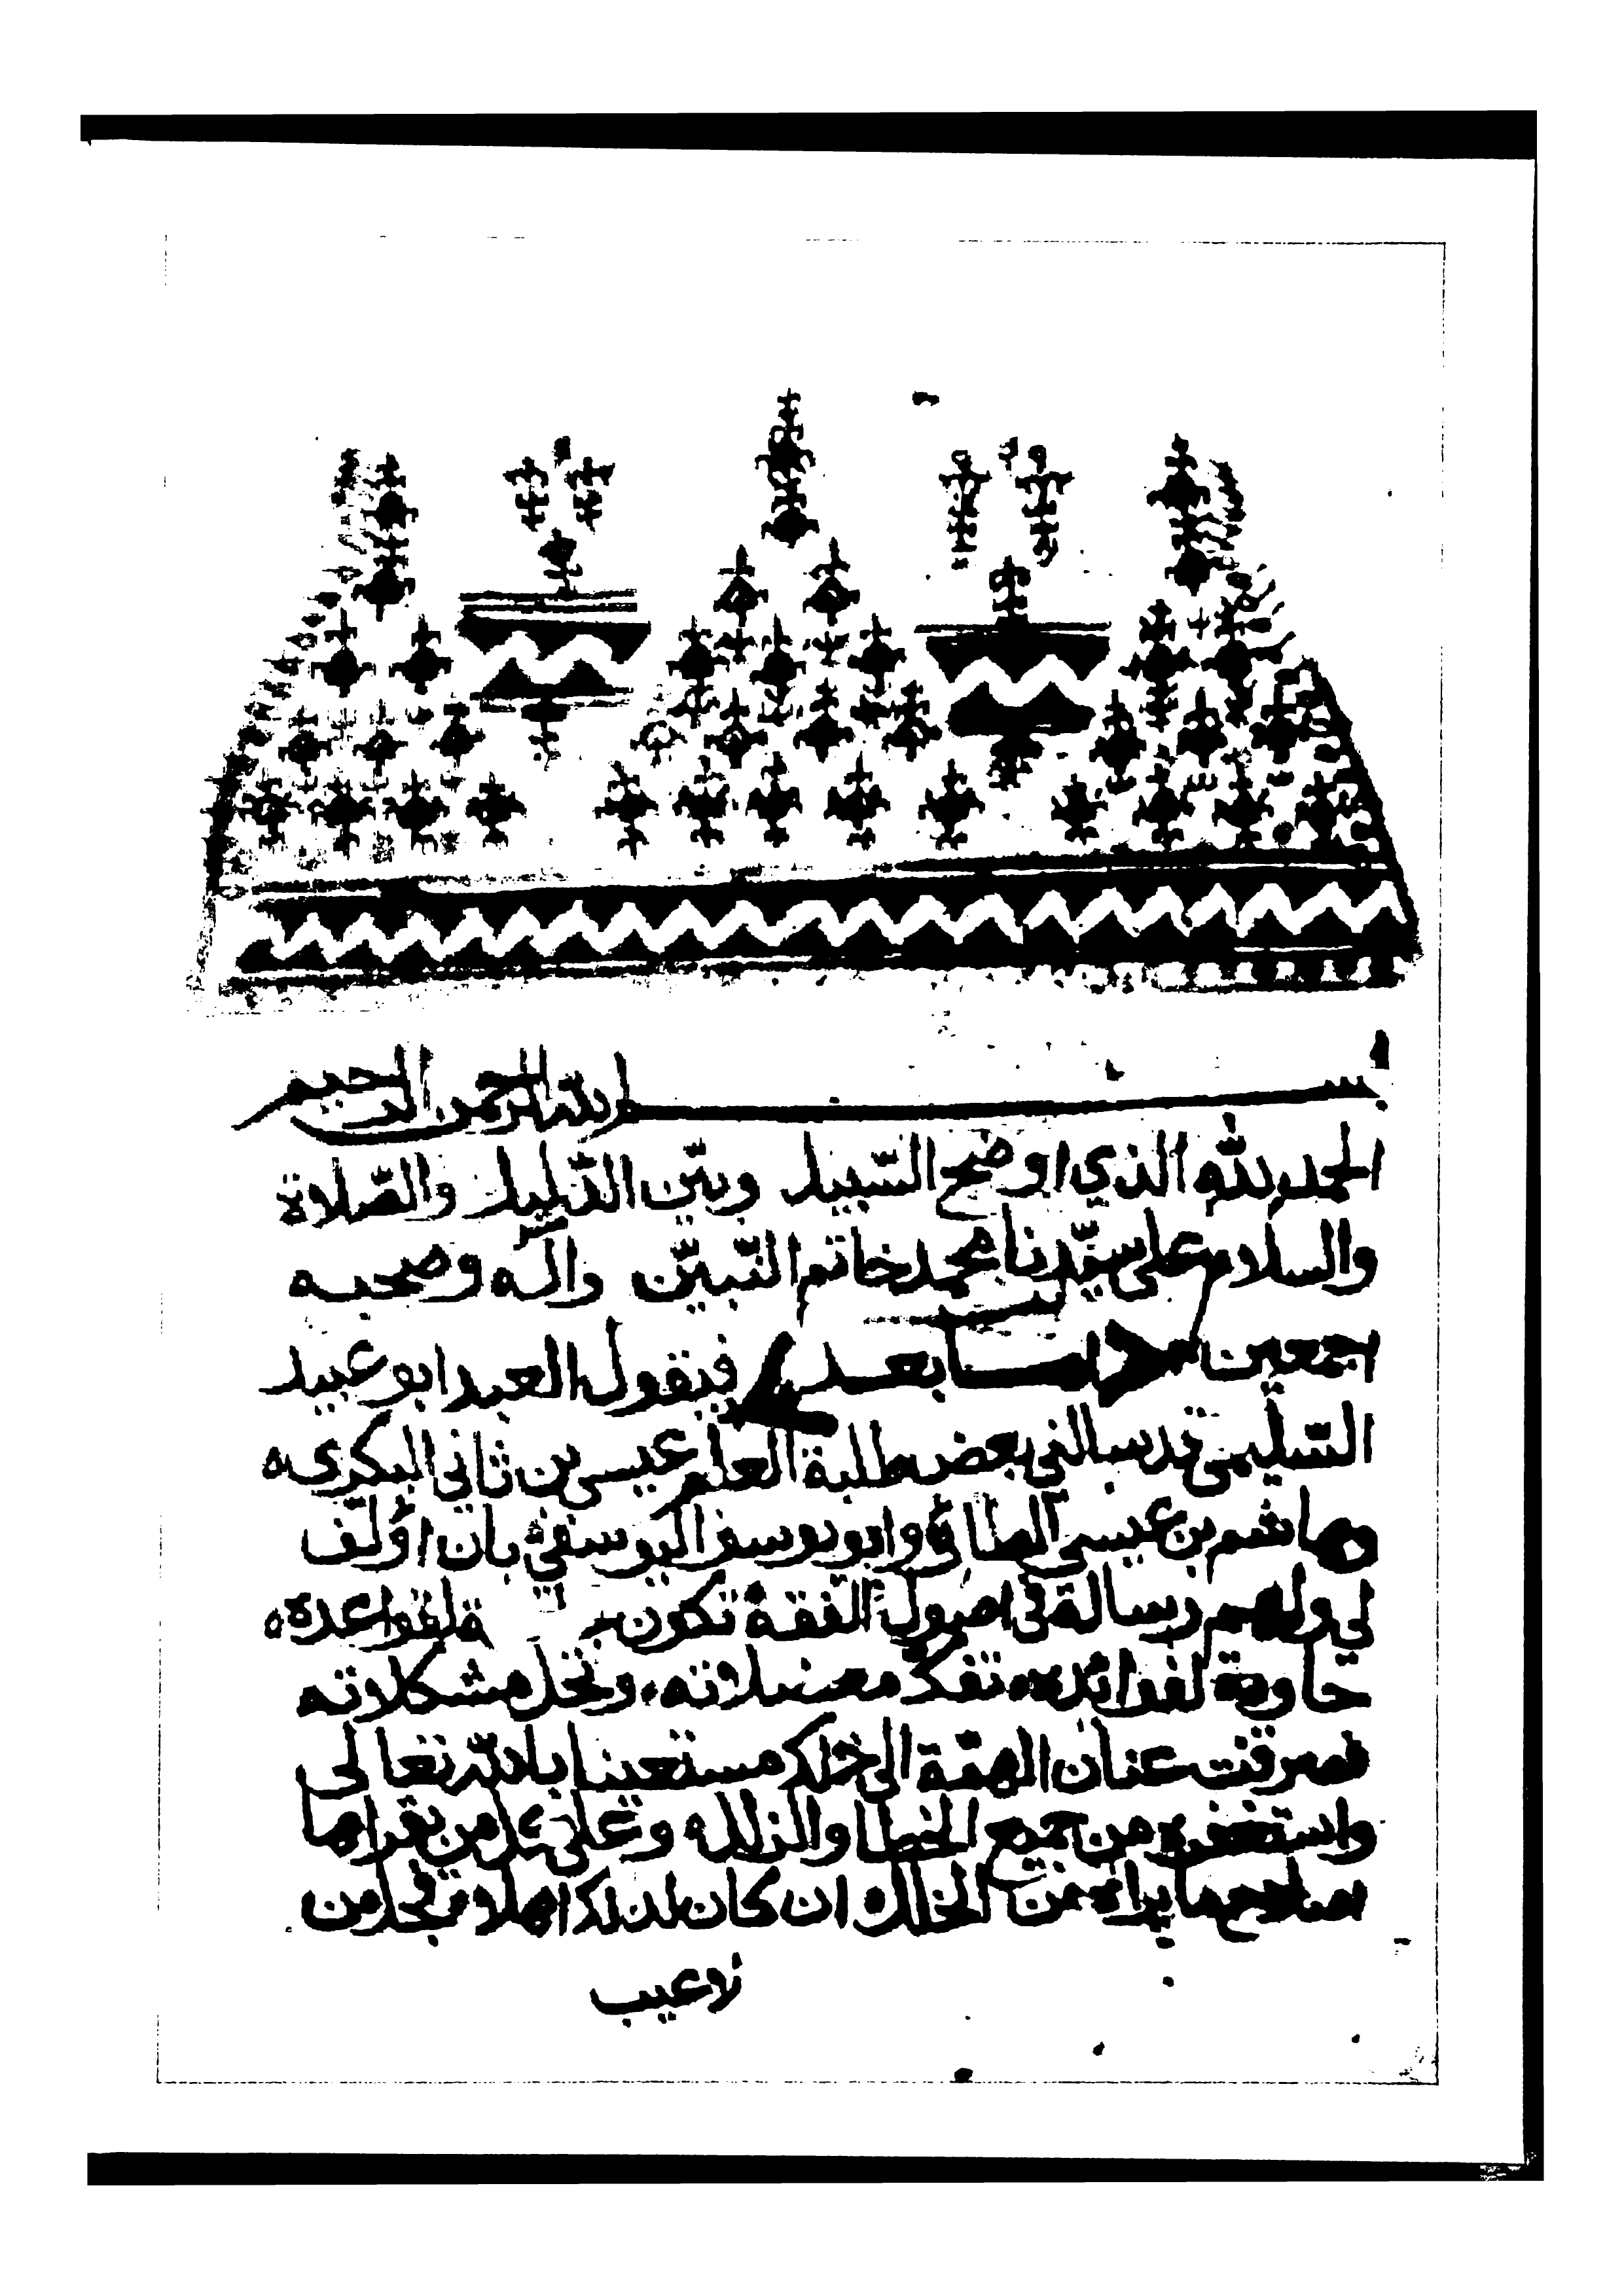 بسم الله الرحمن الرحيم
الحمد لله الذي اوضح السّبيل وبيّن الدّليل والصّلاة
والسلام على سيّدنا محمد خاتم النّبيّن واله وصحبه
اجمعين اما بعد فيقول العبد ابو عبيد
السّليمي قد سالني بعض طلبة العلم عيسى بن ثاني البكري
وهاشم بن عيسى الطائي وابو يوسف اليوسفي بان اؤلّف
لي ولهم رسالة في اصول الفقه تكون لقواعده
حاوية لفوائده تفكّ معضلاته وتحل مشكلاته
فصرفت عنان الهمّة الى ذلك مستعينا بالله تعالى
واستغفره من جميع الخطا والزلل وعلى كل من يقراها
اصلاح ما يراه من الخلل ان كان لذلك اهلا فجل من
لا عيب